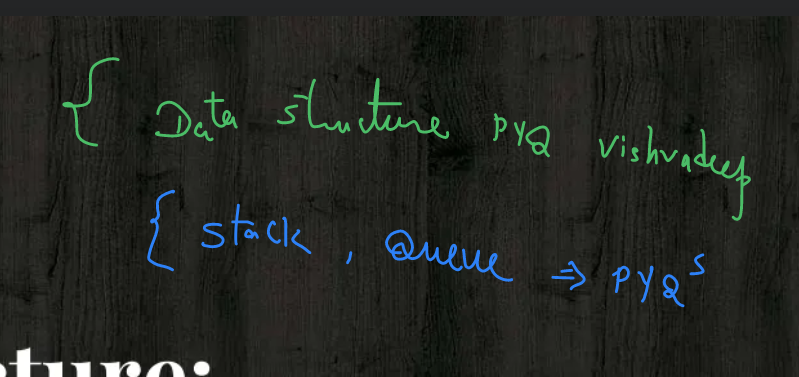 { Data structure PYQ vishvadeep
{ stack, Queue ⇒ PYQs
cture: